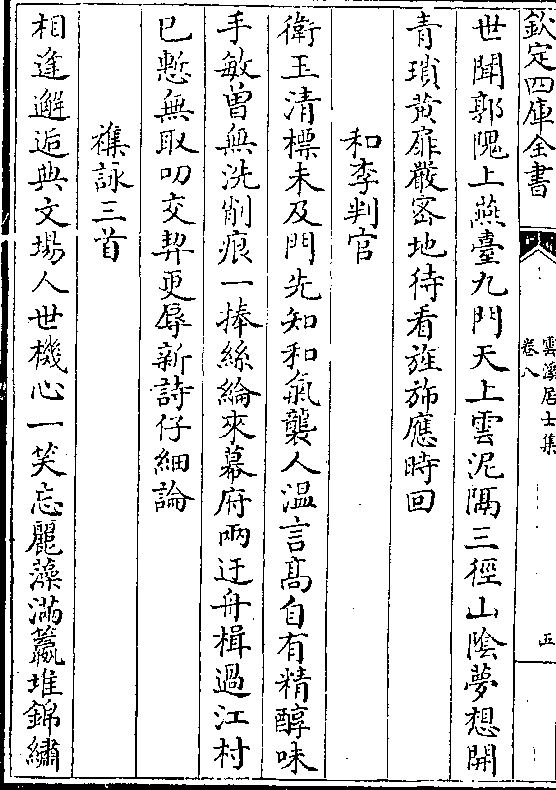 欽定四庫全書
雲溪居士集
卷八
五
世聞郭隗上燕臺九門天上雲泥隔三徑山陰夢想開
青瑣黃扉嚴密地待看旌斾應時回
和李判官
衛玉清標未及門先知和氣襲人溫言髙自有精醇味
手敏曾無洗削痕一捧絲綸來幕府兩迂舟楫過江村
已慙無取叨交契更辱新詩仔細論
襍詠三首
相逢邂逅典文場人世機心一笑忘麗藻滿籯堆錦繡